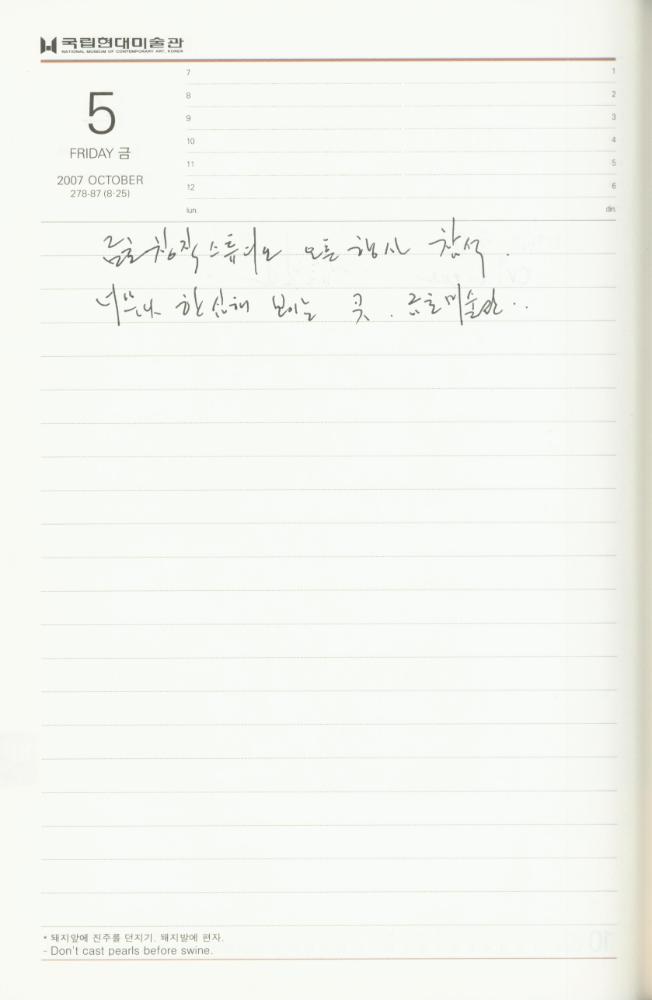 국립현대미술관
NATIONAL MUSEUM OF CONTEMPORARY ART, KOREA
5
FRIDAY 금
2007 OCTOBER
278-87 (8·25)
7
8
9
10
11
12
lun.
1
2
3
4
5
6
din.
금호창작스튜디오 오픈 행사 참석.
너무나 한심해 보이는 곳. 금호미술관..
• 돼지앞에 진주를 던지기, 돼지발에 편자.
- Don't cast pearls before swine.